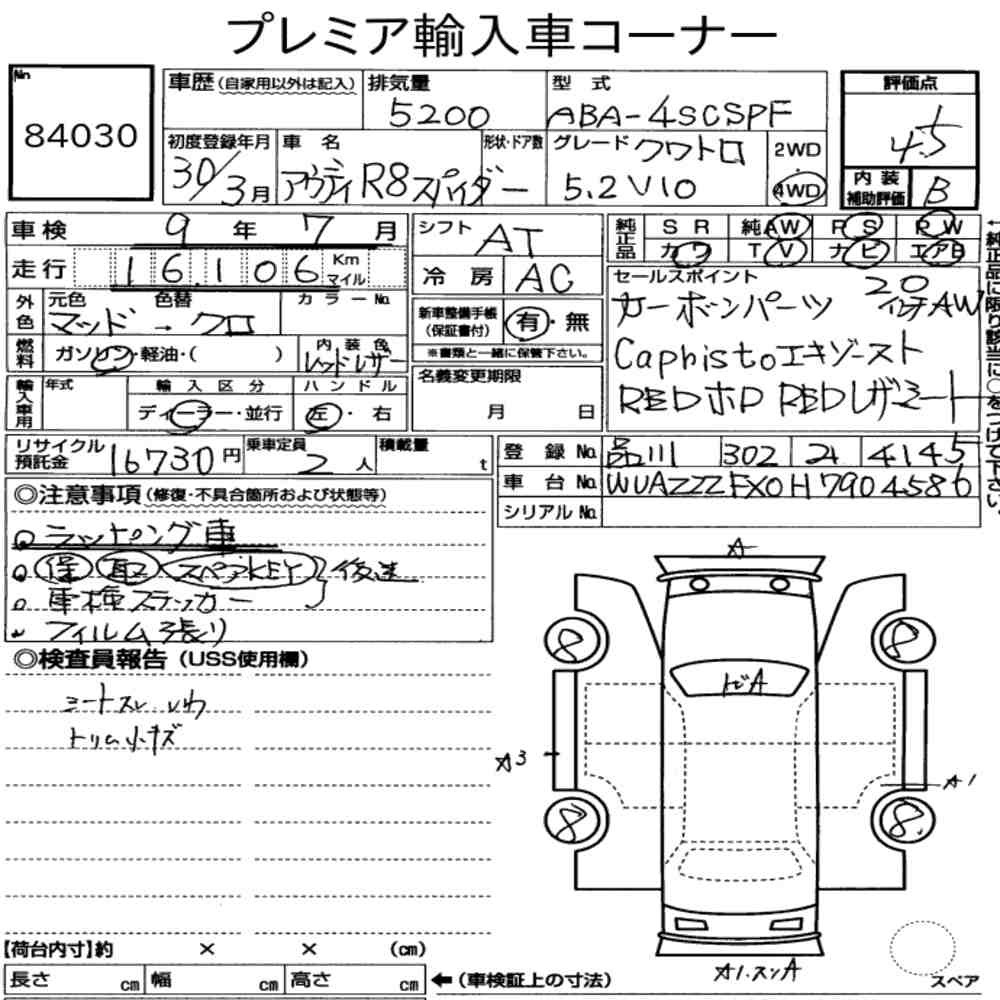 プレミア輸入車コーナー
No
84030
車歴(自家用以外は記入)
排気量
5200
型式
ABA-4SCSPF
評価点
4.5
初度登録年月
30/3月
車名
アウディR8スパイダー
形状・ドア数
グレード クワトロ
5.2V10
2WD
4WD
内装
補助評価
B
車検 9年 7月
走行 16,106 Km マイル
シフト
AT
冷房 AC
純正品
S R 純AW P S P W
カワ T V ナビ エアB
←純正品に限り該当に○をつけて下さい。
外色
元色 色替
マッド → クロ
カラーNo.
新車整備手帳
(保証書付)
有・無
※書類と一緒に保管下さい。
セールスポイント
カーボーンパーツ 20インチAW
Caphistoエキゾースト
REDホロ REDレザーシート
燃料
ガソリン・軽油・( )
内装色
レッドレザー
輸入車用
年式
輸入区分
ディーラー・並行
ハンドル
左・右
名義変更期限
月 日
リサイクル
預託金
16730円
乗車定員
2人
積載量
t
登録No. 品川 302 4145
車台No. WUAZZZFX0H7904586
シリアルNo.
◎注意事項(修復・不具合箇所および状態等)
ラッピング車
保 取 スペアKEY 後送
車種ステッカー
フィルム張り
◎検査員報告(USS使用欄)
シートスレ、シワ
トリム小キズ
A
8
8
トビA
A3
A1
8
8
A1.スリA
スペア
【荷台内寸】約 × × (cm)
長さ cm 幅 cm 高さ cm ←(車検証上の寸法)